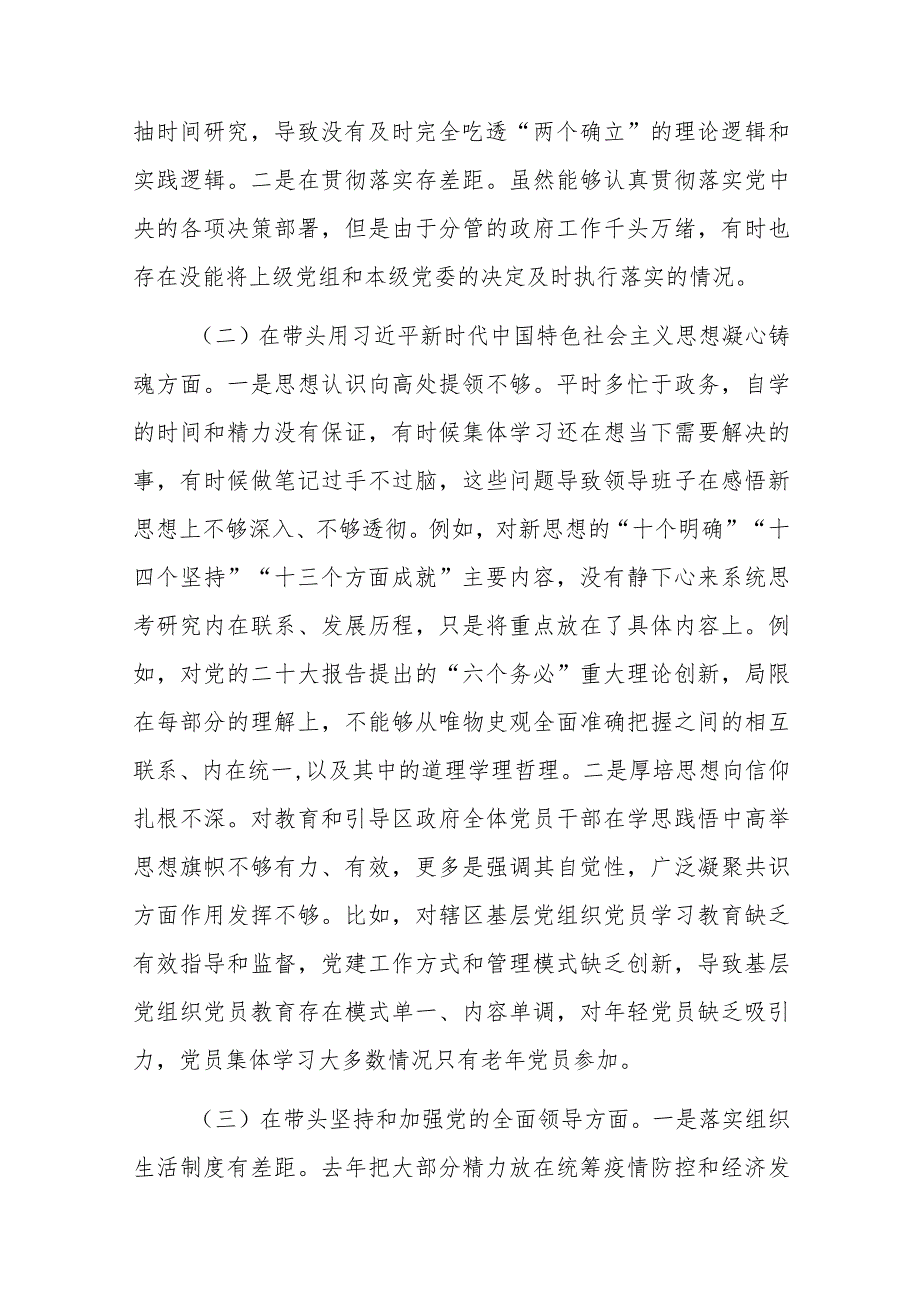 抽时间研究，导致没有及时完全吃透“两个确立”的理论逻辑和
实践逻辑。二是在贯彻落实存差距。虽然能够认真贯彻落实党中
央的各项决策部署，但是由于分管的政府工作千头万绪，有时也
存在没能将上级党组和本级党委的决定及时执行落实的情况。
（二）在带头用习近平新时代中国特色社会主义思想凝心铸
魂方面。一是思想认识向高处提领不够。平时多忙于政务，自学
的时间和精力没有保证，有时候集体学习还在想当下需要解决的
事，有时候做笔记过手不过脑，这些问题导致领导班子在感悟新
思想上不够深入、不够透彻。例如，对新思想的“十个明确”“十
四个坚持”“十三个方面成就”主要内容，没有静下心来系统思
考研究内在联系、发展历程，只是将重点放在了具体内容上。例
如，对党的二十大报告提出的“六个务必”重大理论创新，局限
在每部分的理解上，不能够从唯物史观全面准确把握之间的相互
联系、内在统一,以及其中的道理学理哲理。二是厚培思想向信仰
扎根不深。对教育和引导区政府全体党员干部在学思践悟中高举
思想旗帜不够有力、有效，更多是强调其自觉性，广泛凝聚共识
方面作用发挥不够。比如，对辖区基层党组织党员学习教育缺乏
有效指导和监督，党建工作方式和管理模式缺乏创新，导致基层
党组织党员教育存在模式单一、内容单调，对年轻党员缺乏吸引
力，党员集体学习大多数情况只有老年党员参加。
（三）在带头坚持和加强党的全面领导方面。一是落实组织
生活制度有差距。去年把大部分精力放在统筹疫情防控和经济发